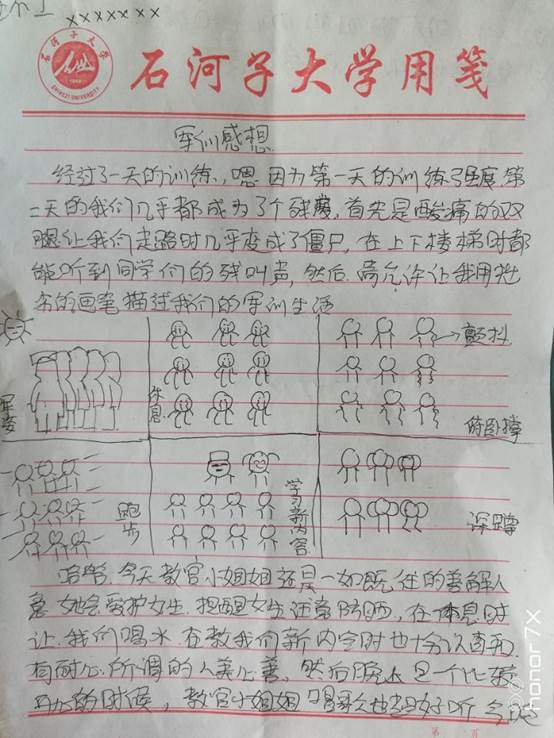 xxxxxxx
石河子大学
SHIHEZI UNIVERSITY
石河子大学用笺
军训感想
经过了一天的训练，嗯，因为第一天的训练强度，第
二天的我们几乎都成为了个残废，首先是酸痛的双
腿让我们走路时几乎变成了僵尸，在上下楼梯时都
能听到同学们的残叫声，然后，请允许让我用拙
劣的画笔描述我们的军训生活
军姿
休息
颤抖
俯卧撑
跑步
学习新内容
深蹲
哈哈，今天教官小姐姐还是一如既往的善解人
意，她会爱护女生，提醒女生注意防晒，在休息时
让我们喝水，在教我们新内容时也十分认真和
有耐心，所谓的人美心善，然后晚上是一个比较
的时候，教官小姐姐唱歌也超好听
第 页
honor 7x